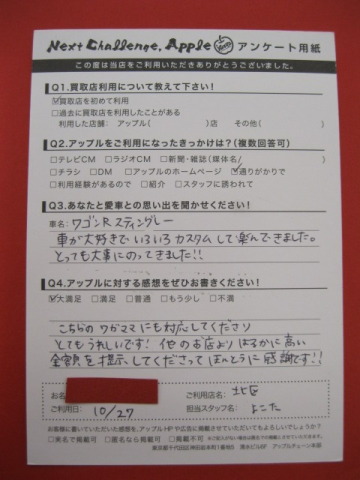 Next Challenge, Apple アンケート用紙
この度は当店をご利用いただきありがとうございました。
Q1.買取店利用について教えて下さい!
☑買取店を初めて利用
□過去に買取店を利用したことがある
利用した店舗: アップル( )店 その他( )
Q2.アップルをご利用になったきっかけは?(複数回答可)
□テレビCM □ラジオCM □新聞・雑誌(媒体名 )
□チラシ □DM □アップルのホームページ ☑通りがかりで
□利用経験があるので □紹介 □スタッフに誘われて
Q3.あなたと愛車との思い出を聞かせください!
車名: ワゴンR スティングレー
車が大好きでいろいろカスタムして楽んできました。
とっても大事にのってきました!!
Q4.アップルに対する感想をぜひお書きください!
☑大満足 □満足 □普通 □もう少し □不満
こちらのワガママにも対応してくださり
とてもうれしいです! 他のお店よりはるかに高い
金額を提示してくださってほんとうに感謝です!!
お名
ご利用店名: 北区
ご利用日: 10/27
担当スタッフ名: よこた
お客様に書いていただいた感想を、アップルHPや広告に掲載させていただいてもよろしいでしょうか?
□実名で掲載可 □匿名なら掲載可 □掲載不可
東京都千代田区神田鍛冶町1番地8 清水ビル6F アップルチェーン本部